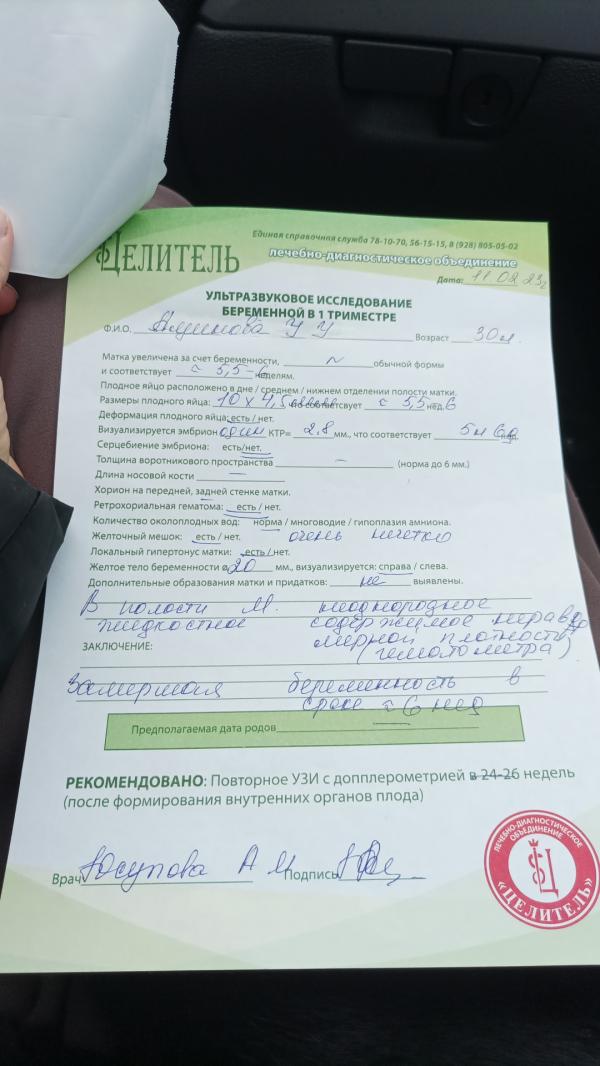 Единая справочная служба 78-10-70, 56-15-15, 8 (928) 805-05-02
ЦЕЛИТЕЛЬ
лечебно-диагностическое объединение
Дата: 11.02.23г
УЛЬТРАЗВУКОВОЕ ИССЛЕДОВАНИЕ
БЕРЕМЕННОЙ В 1 ТРИМЕСТРЕ
Ф.И.О. У У Возраст 30 л.
Матка увеличена за счет беременности, ~ обычной формы
и соответствует ≈ 5,5-6 неделям.
Плодное яйцо расположено в дне / среднем / нижнем отделении полости матки.
Размеры плодного яйца: 10 x 4,5 соответствует ≈ 5,5 нед. 6
Деформация плодного яйца: есть / нет.
Визуализируется эмбрион один КТР= 2,8 мм., что соответствует 5н 6д
Серцебиение эмбриона: есть/нет.
Толщина воротникового пространства – (норма до 6 мм.)
Длина носовой кости –
Хорион на передней, задней стенке матки.
Ретрохориальная гематома: есть / нет.
Количество околоплодных вод: норма / многоводие / гипоплазия амниона.
Желточный мешок: есть / нет. очень нечетко
Локальный гипертонус матки: есть / нет.
Желтое тело беременности d 20 мм., визуализируется: справа / слева.
Дополнительные образования матки и придатков: не выявлены.
В полости м. неоднородное
жидкостное содержимое неравно
ЗАКЛЮЧЕНИЕ: мерной плотности
(гематометра)
Замершая беременность в
сроке ≈ 6 нед
Предполагаемая дата родов
РЕКОМЕНДОВАНО: Повторное УЗИ с допплерометрией в 24-26 недель
(после формирования внутренних органов плода)
Врач Юсупова А М Подпись
ЛЕЧЕБНО-ДИАГНОСТИЧЕСКОЕ ОБЪЕДИНЕНИЕ
«ЦЕЛИТЕЛЬ»